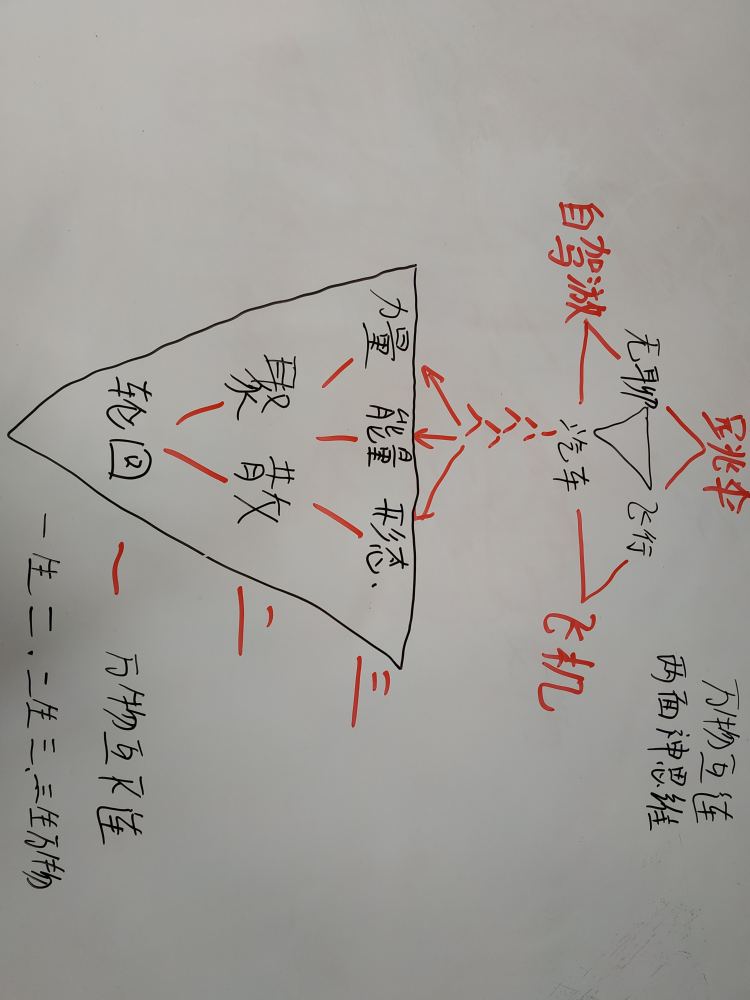 跳伞
万物互连
两面神思维
无聊 飞行
自驾游 汽车 飞机
力量 能量 形态.
三
聚 散
二
轮回
一
万物互不连
一生二.二生三.三生万物